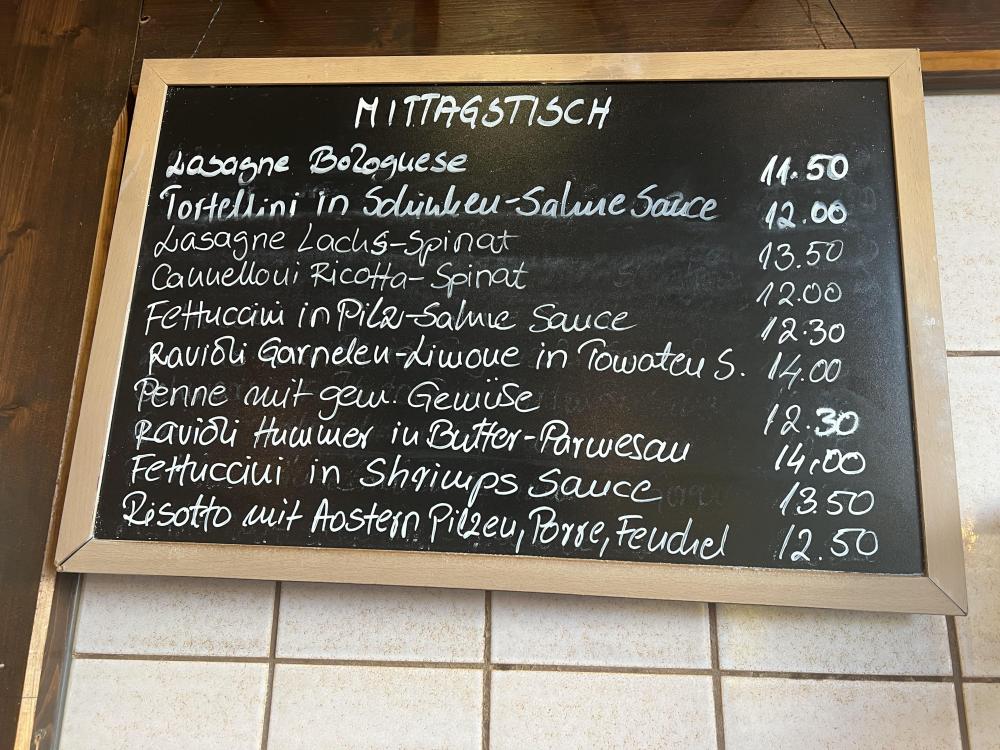 MITTAGSTISCH
Lasagne Bolognese 11.50
Tortellini in Schinken-Sahne Sauce 12.00
Lasagne Lachs-Spinat 13.50
Cannelloni Ricotta-Spinat 12.00
Fettuccini in Pilz-Sahne Sauce 12.30
Ravioli Garnelen-Limone in Tomaten S. 14.00
Penne mit gem. Gemüse 12.30
Ravioli Hummer in Butter-Parmesan 14,00
Fettuccini in Shrimps Sauce 13.50
Risotto mit Austern Pilzen, Porre, Fenchel 12.50